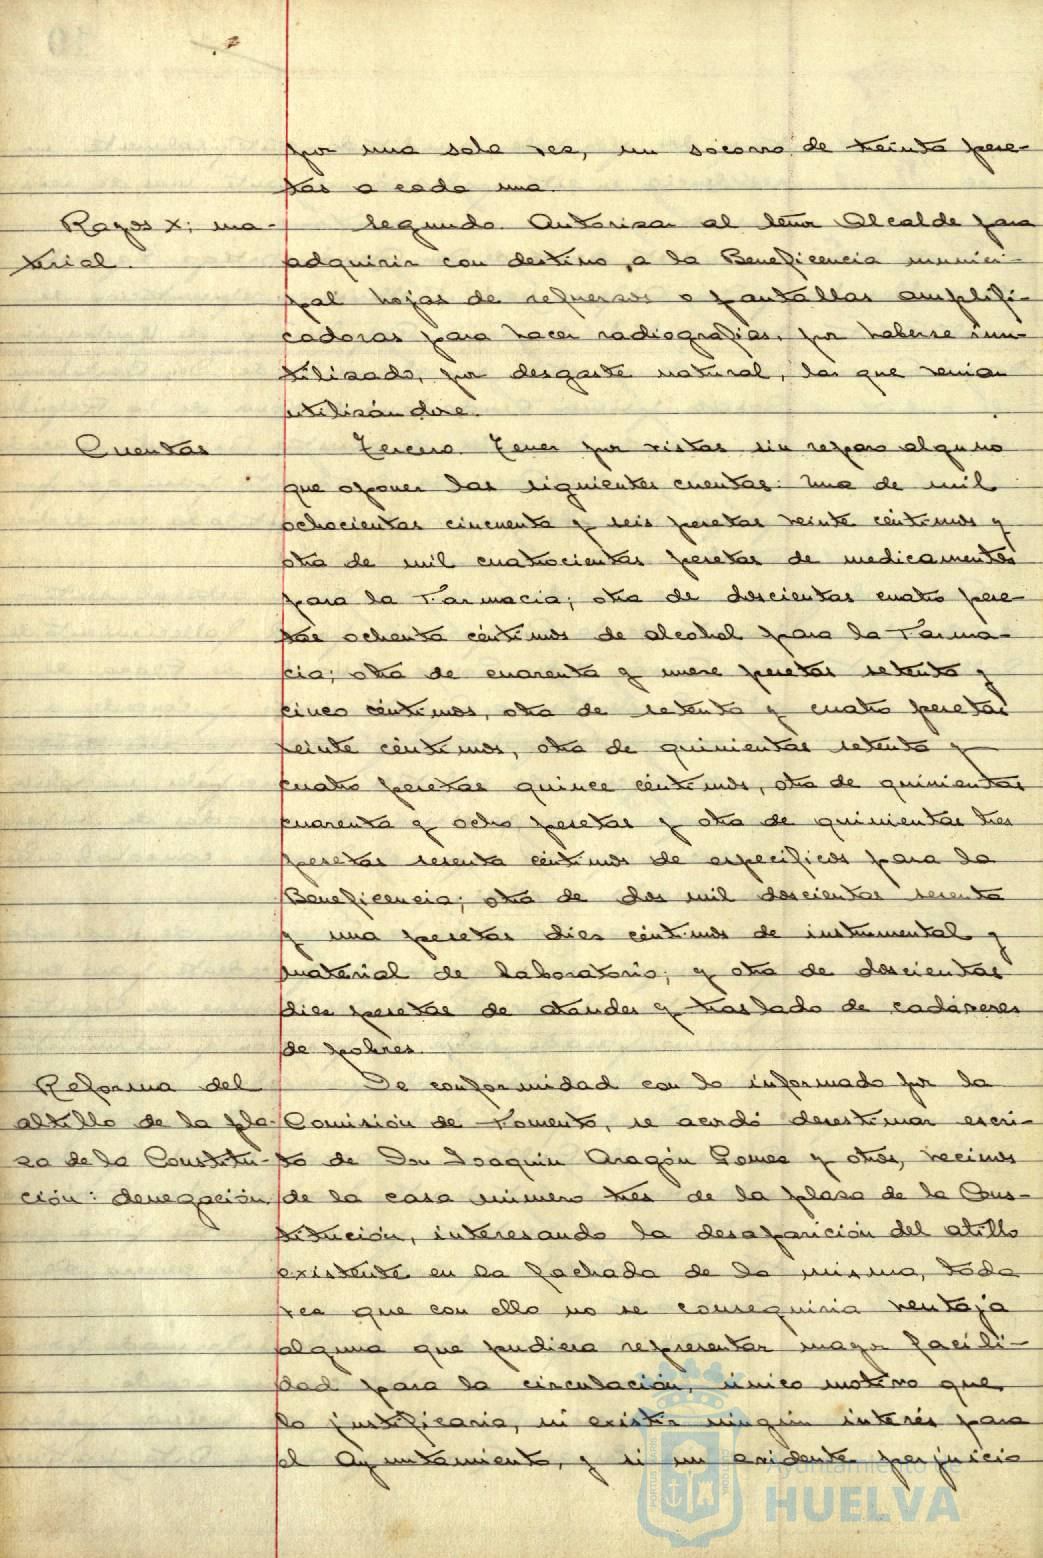 por una sola vez, un socorro de treinta pese-
tas a cada una.
Rayos X; ma-
terial.
Segundo. Autorizar al Señor Alcalde para
adquirir con destino a la Beneficencia munici-
pal hojas de refuerzos o pantallas amplifi-
cadoras para hacer radiografias, por haberse inu-
tilizado, por desgaste natural, las que venian
utilizándose.
Cuentas
Tercero. Tener por vistas sin reparo alguno
que oponer las siguientes cuentas: Una de mil
ochocientas cincuenta y seis pesetas veinte céntimos y
otra de mil cuatrocientas pesetas de medicamentos
para la Farmacia; otra de doscientas cuatro pese-
tas ochenta céntimos de alcohol para la Farma-
cia; otra de cuarenta y nueve pesetas setenta y
cinco céntimos, otra de setenta y cuatro pesetas
veinte céntimos, otra de quinientas setenta y
cuatro pesetas quince céntimos, otra de quinientas
cuarenta y ocho pesetas y otra de quinientas tres
pesetas sesenta céntimos de especificos para la
Beneficencia; otra de dos mil doscientas sesenta
y una pesetas diez céntimos de instrumental y
material de laboratorio; y otra de doscientas
diez pesetas de ataudes y traslado de cadáveres
de pobres.
Reforma del
altillo de la pla-
za de la Constitu-
ción: denegación.
De conformidad con lo informado por la
Comisión de Fomento, se acordó desestimar escri-
to de Don Joaquin Aragón Gomez y otros, vecinos
de la casa número tres de la plaza de la Cons-
titución, interesando la desaparición del atillo
existente en la fachada de la misma, toda
vez que con ello no se conseguiria ventaja
alguna que pudiera representar mayor facili-
dad para la circulación, único motivo que
lo justificaria, ni existir ningún interés para
el Ayuntamiento, y si un evidente perjuicio
Ayuntamiento de
HUELVA